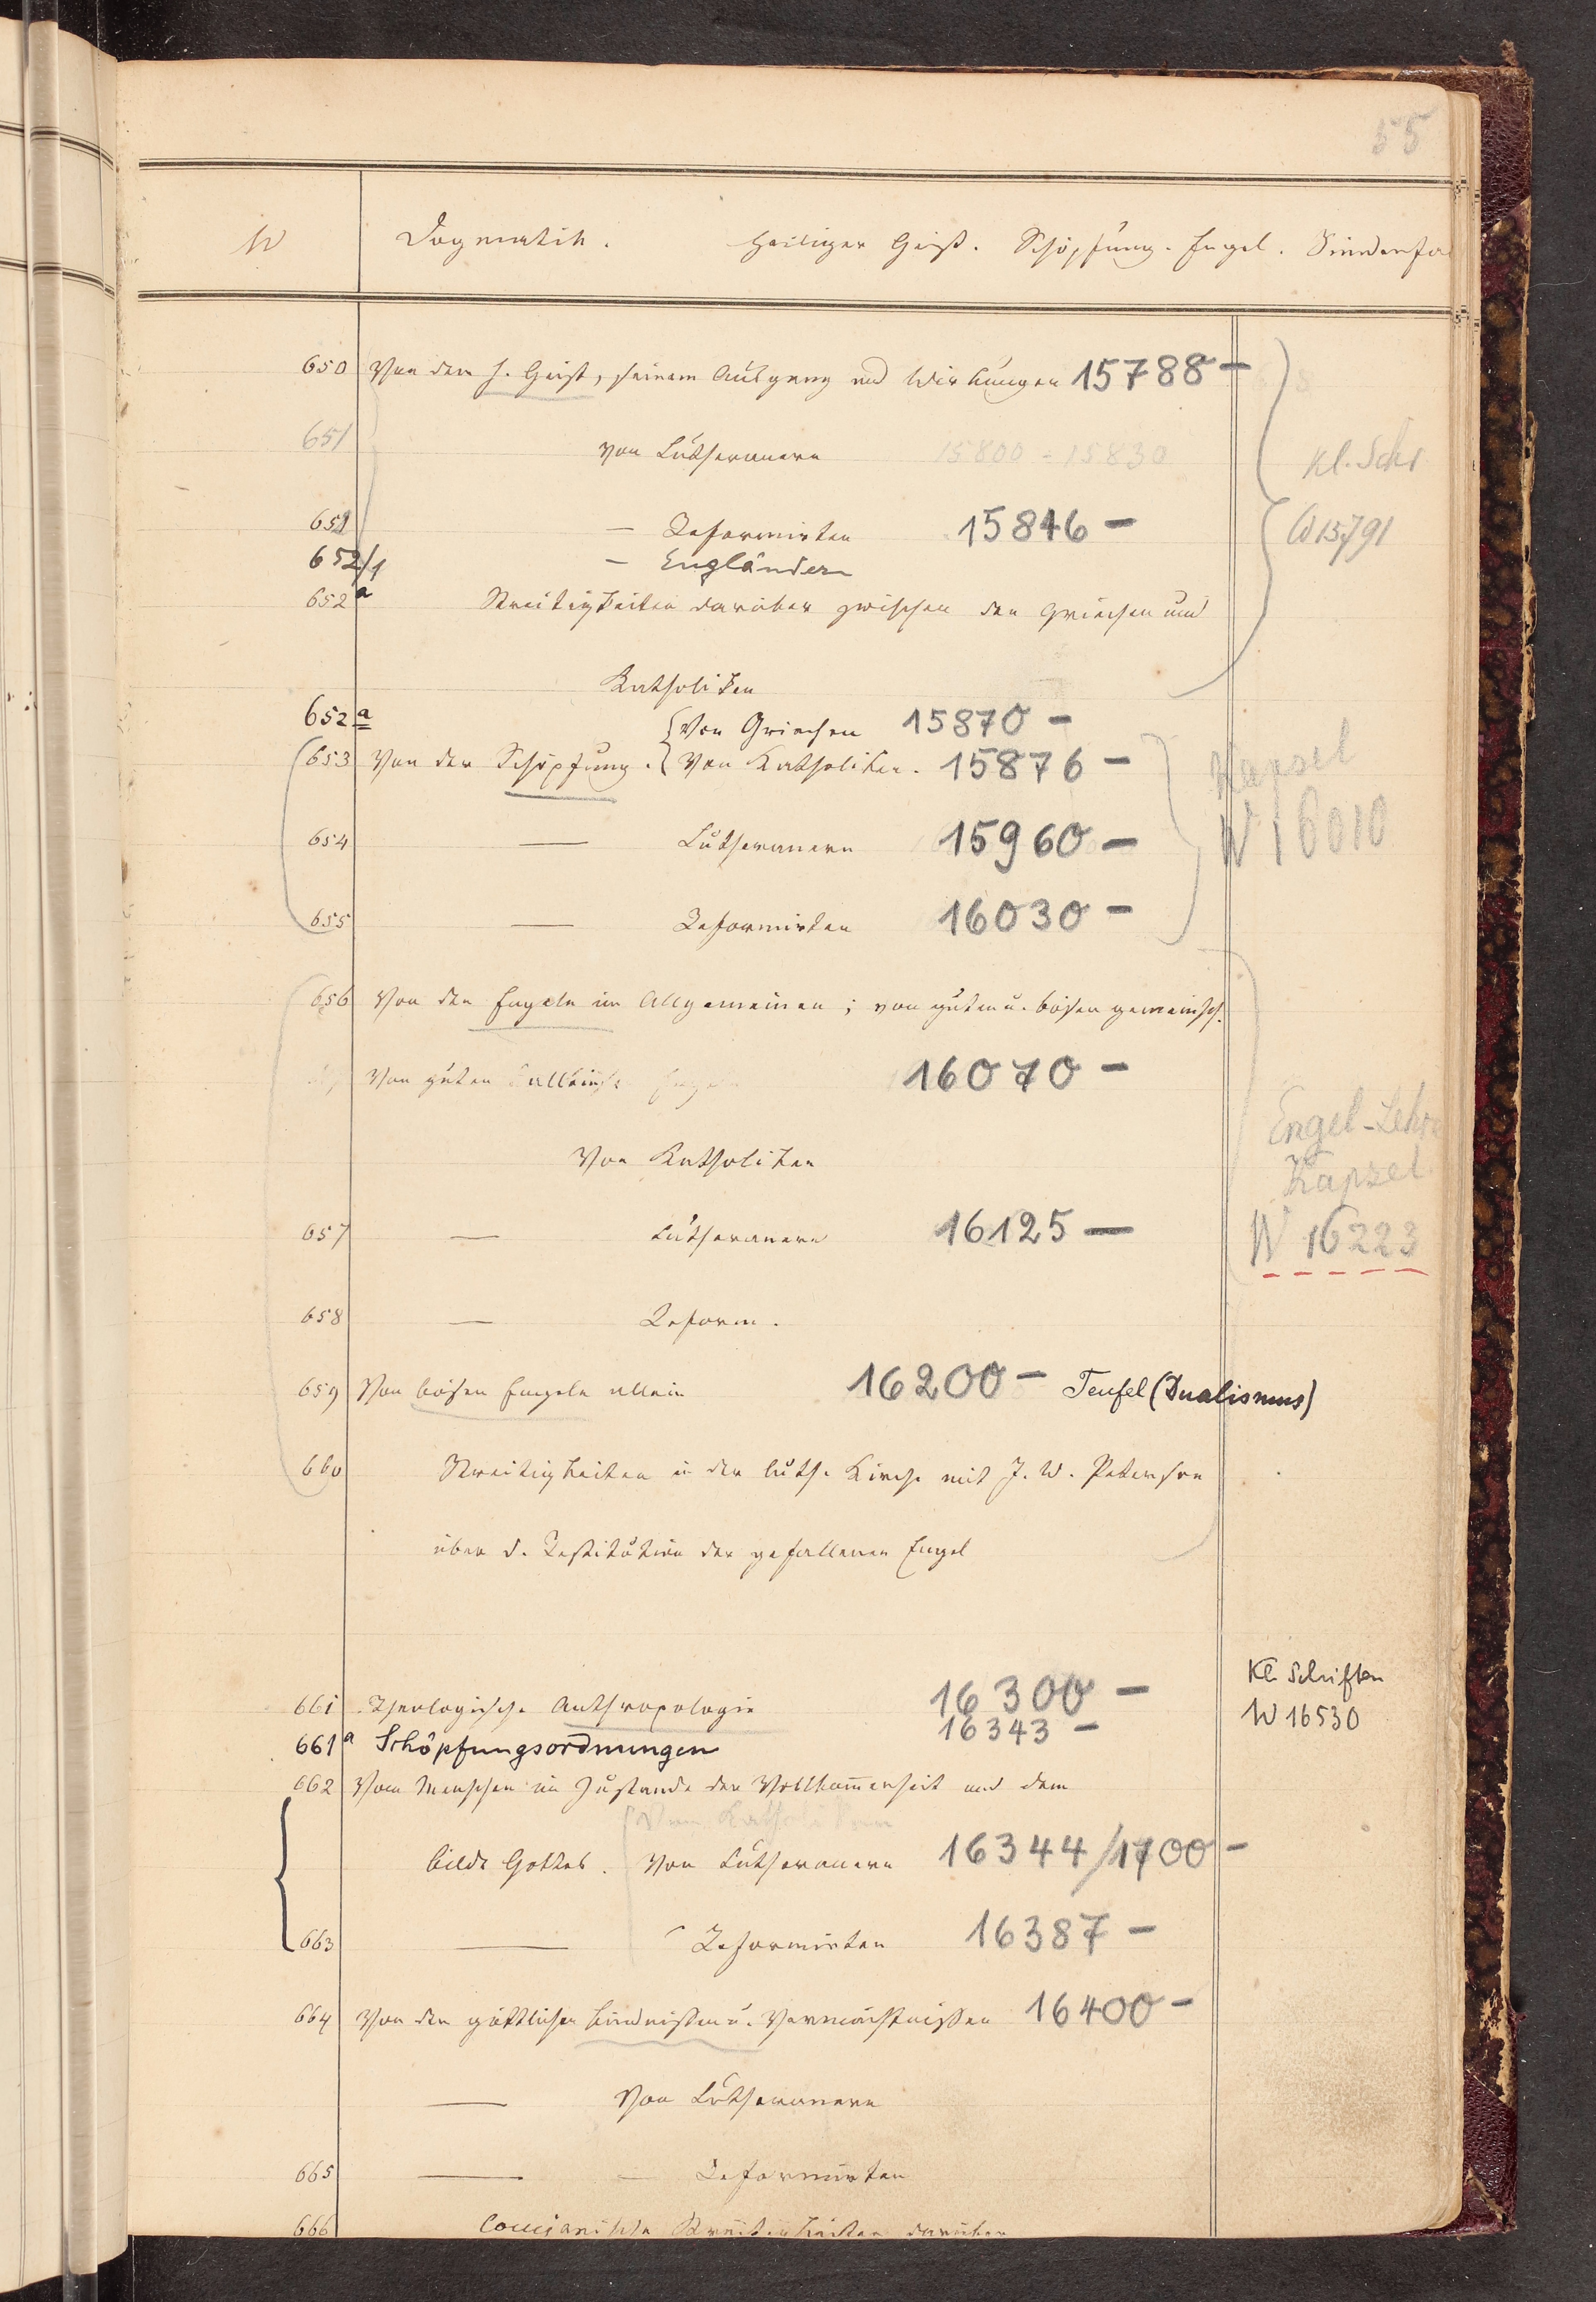 55
W Dogmatik. Heiliger Geist. Schöpfung. Engel. Sündenfa
650 Von dem h. Geist, seinem Ausgang und Wirkungen 15788 –
651 von Lutheranern 15800 – 15830
Kl. Schr
652 — Reformirten 15846 –
W 15791
652/1 – Engländern
652a Streitigkeiten darüber zwischen den Griechen und
Katholiken
652a Von Griechen 15870 –
653 Von der Schöpfung. Von Katholiken. 15876 –
Kapsel
654 — Lutheranern 15960 –
W 16010
655 — Reformirten 16030 –
656 Von den Engeln im Allgemeinen; von guten u. bösen gemeinsch.
Von guten 16070 –
Engel-Lehre
Von Katholiken
Kapsel
657 — Lutheranern 16125 —
W 16223
658 — Reform.
659 Von bösen Engeln allein 16200 – Teufel (Dualismus)
660 Streitigkeiten in der luth. Kirche mit J. W. Petersen
über d. Restitution der gefallenen Engel
Kl. Schriften
661 Theologische Anthropologie 16300 –
W 16530
661a Schöpfungsordnungen 16343 –
662 Vom Menschen im Zustande der Vollkom̄enheit und dem
Von Katholiken
Bilde Gottes. Von Lutheranern 16344/1700 –
663 — Reformirten 16387 –
664 Von den göttlichen Bündnissen u. Vermächtnissen 16400 –
— Von Lutheranern
665 — — Reformirten
666 Streitigkeiten darüber